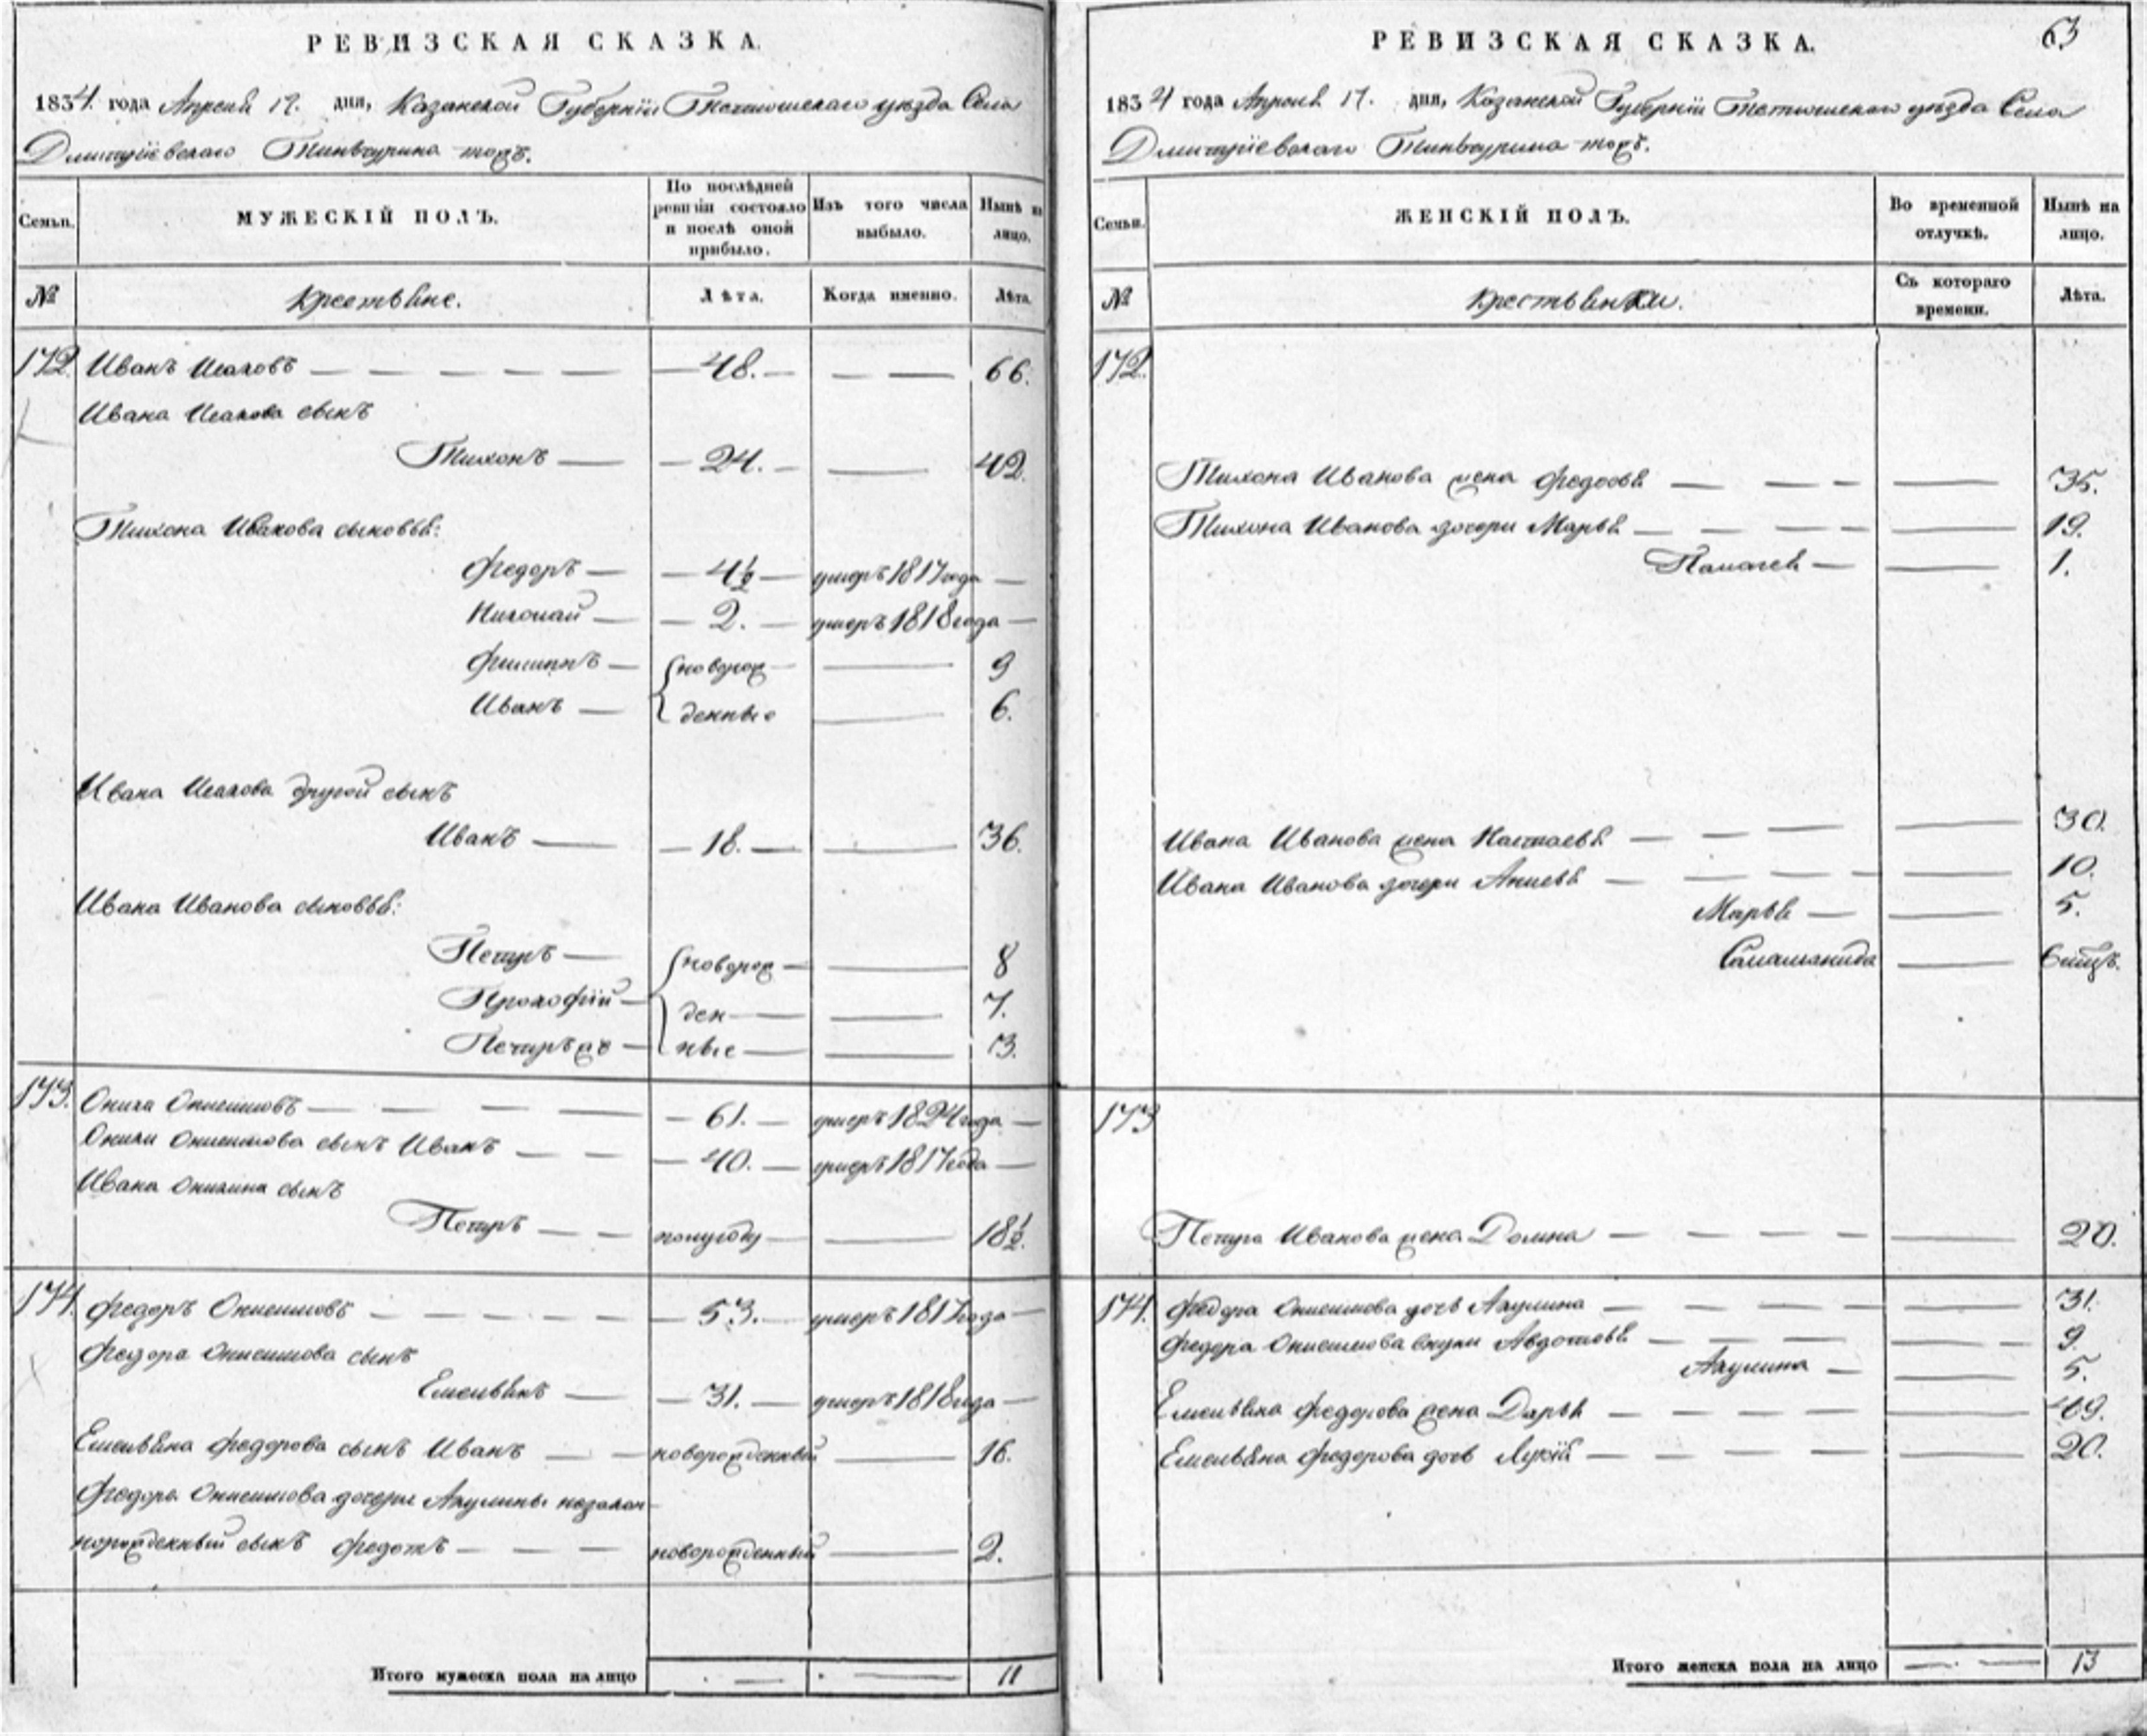 РЕВИЗСКАЯ СКАЗКА.
1834 года Апреля 17. дня, Казанской Губернiи Тетюшскаго уѣзда Села
Дмитрiевскаго Тинчурина тожъ.
Семьи.
МУЖЕСКIЙ ПОЛЪ.
По послѣдней ревизiи состояло и послѣ оной прибыло.
Изъ того числа выбыло.
Нынѣ на лицо.
№
Крестьяне.
Лѣта.
Когда именно.
Лѣта.
172. Иванъ Исаковъ — 48. — 66.
Ивана Исакова сынъ
Тихонъ — 24. — 42.
Тихона Иванова сыновья:
Федоръ — 4½ — умеръ 1817 года —
Николай — 2. — умеръ 1818 года —
Филипъ — новорож — 9
Иванъ — денные — 6.
Ивана Исакова другой сынъ
Иванъ — 18. — 36.
Ивана Иванова сыновья:
Петръ — новорож — 8
Прокофiй — ден — 7.
Петръ же — ные — 3.
173. Оника Онисимовъ — 61. — умеръ 1824 года —
Оники Онисимова сынъ Иванъ — 40. — умеръ 1817 года —
Ивана Оникина сынъ
Петръ — полугоду — 18½.
174. Федоръ Онисимовъ — 53. — умеръ 1817 года —
Федора Онисимова сынъ
Емельянъ — 31. — умеръ 1818 года —
Емельяна Федорова сынъ Иванъ — новорожденный — 16.
Федора Онисимова дочери Акулины незакон-
норожденный сынъ Федотъ — новорожденный — 2.
Итого мужеска пола на лицо — 11
63
РЕВИЗСКАЯ СКАЗКА.
1834 года Апреля 17. дня, Казанской Губернiи Тетюшскаго уѣзда Села
Дмитрiевскаго Тинчурина тожъ.
Семьи.
ЖЕНСКIЙ ПОЛЪ.
Во временной отлучкѣ.
Нынѣ на лицо.
№
Крестьянки.
Съ котораго времени.
Лѣта.
172.
Тихона Иванова жена Федосья — 35.
Тихона Иванова дочери Марья — 19.
Палагея — 1.
Ивана Иванова жена Настасья — 30.
Ивана Иванова дочери Анисья — 10.
Марья — 5.
Саламанида — 6 мцъ.
173
Петра Иванова жена Домна — 20.
174. Федора Онисимова дочь Акулина — 31.
Федора Онисимова внуки Авдотья — 9.
Акулина — 5.
Емельяна Федорова жена Дарья — 49.
Емельяна Федорова дочь Лукiя — 20.
Итого женска пола на лицо — 13